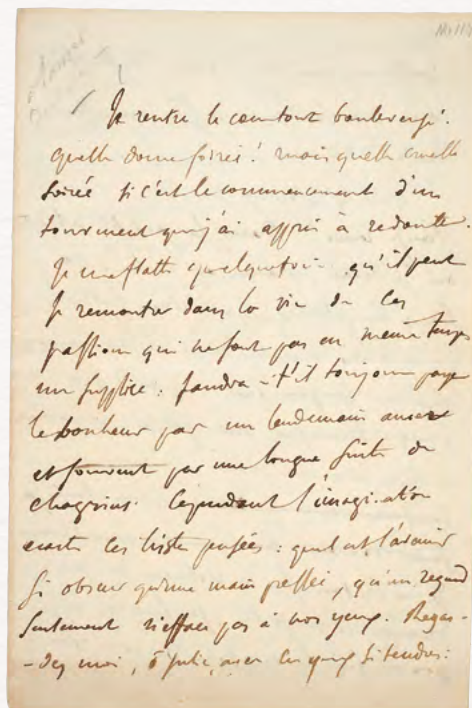 Je rentre le cœur tout bouleversé.
quelle douce soirée! mais quelle cruelle
soirée si c'est le commencement d'un
tourment que j'ai appris à redouter.
Je me flatte quelquefois qu'il peut
se rencontrer dans la vie de ces
passions qui ne font pas en meme temps
un supplice: faudra-t'il toujours payer
le bonheur par un lendemain amer
et souvent par une longue suite de
chagrins. Cependant l'imagination
écarte ces tristes pensées: quel est l'avenir
si obscur qu'une main pressée, qu'un regard
seulement n'efface pas à nos yeux. Regar-
-dez moi, ô Julie, avec ces yeux si tendres: